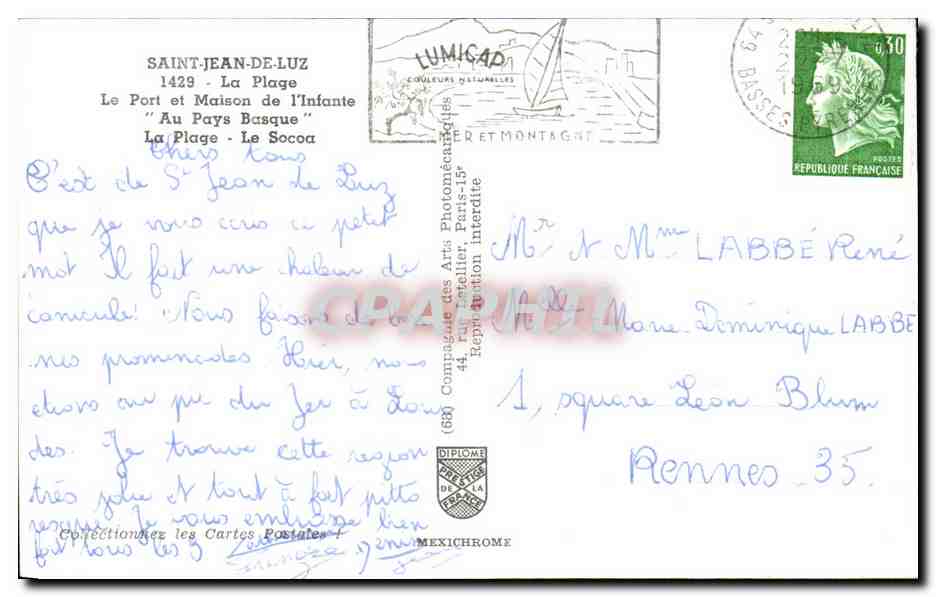 SAINT-JEAN-DE-LUZ
1429 - La Plage
Le Port et Maison de l'Infante
"Au Pays Basque"
La Plage - Le Socoa
Chers tous
C'est de St Jean de Luz
que je vous écris ce petit
mot Il fait une chaleur de
canicule! Nous faisons de bon
nes promenades Hier, nous
étions au pu du Fer à Lour
des. Je trouve cette region
très jolie et tout à fait pitto
resque. Je vous embrasse bien
fort tous les 3
Collectionnez les Cartes Postales !
Denise
LUMICAP
COULEURS NATURELLES
MER ET MONTAGNE
(63) Compagnie des Arts Photomécaniques
44, rue Letellier, Paris-15e
Reproduction interdite
DIPLOME
PRESTIGE
DE LA
FRANCE
MEXICHROME
64
1969
BASSES PYRENEES
0,30
POSTES
REPUBLIQUE FRANÇAISE
Mr et Mme LABBÉ René
Melle Marie-Dominique LABBE
1, square Léon Blum
Rennes 35.
CPAPHIL